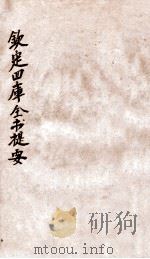 欽定四庫全书提要
読狗
mtoou.info